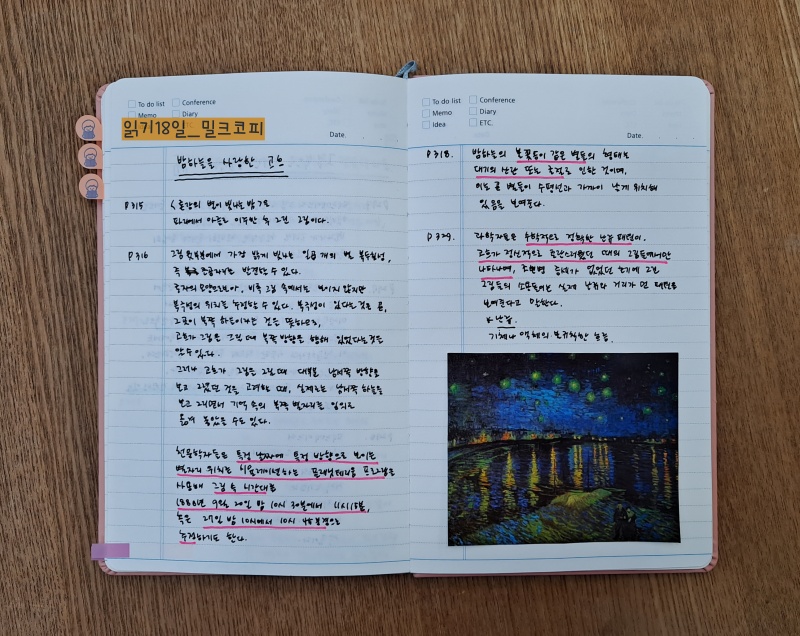 To do list
Conference
Memo
Diary
ETC.
읽기18일_밀크코피
Date.
밤하늘을 사랑한 고흐.
P315
<론강의 별이 빛나는 밤>은
파리에서 아를로 이주한 후 그린 그림이다.
P316
그림 윗부분에서 가장 밝게 빛나는 일곱 개의 별 북두칠성,
즉 큰곰자리를 발견할 수 있다.
국자의 모양으로 보아, 비록 그림 속에서는 보이지 않지만
북극성의 위치를 추정할 수 있다. 북극성이 있다는 것은 곧,
그곳이 북쪽 하늘이라는 것을 뜻하므로,
고흐가 그림을 그릴 때 북쪽 방향을 향해 있었다는 것을
알 수 있다.
그러나 고흐가 그림을 그릴 때 대부분 남서쪽 방향을
보고 그렸던 것을 고려할 때, 실제로는 남서쪽 하늘을
보고 그리면서 기억 속의 북쪽 별자리를 임의로
옮겨 놓았을 수도 있다.
천문학자들은 특정 날짜에 특정 방향으로 보이는
별자리 위치를 시뮬레이션하는 플래닛테리움 프로그램을
사용해 그림 속 시간대를
1888년 9월 20일 밤 10시 30분에서 11시 15분,
혹은 27일 밤 10시에서 10시 45분경으로
추정하기도 한다.
To do list
Conference
Memo
Diary
Idea
ETC.
Date.
P318.
밤하늘의 불꽃들이 같은 별들의 형태는
대기의 산란 또는 굴절로 인한 것이며,
이는 곧 별들이 수평선과 가까이 낮게 위치해
있음을 보여준다.
P329.
과학자들은 수학적으로 정확한 난류 패턴이,
고흐가 정신적으로 혼란스러웠던 때의 그림들에서만
나타나며, 조현병 증세가 없었던 시기에 그린
그림들의 소용돌이는 실제 난류와 거리가 먼 패턴을
보여준다고 말한다.
* 난류.
기체나 액체의 불규칙한 운동.